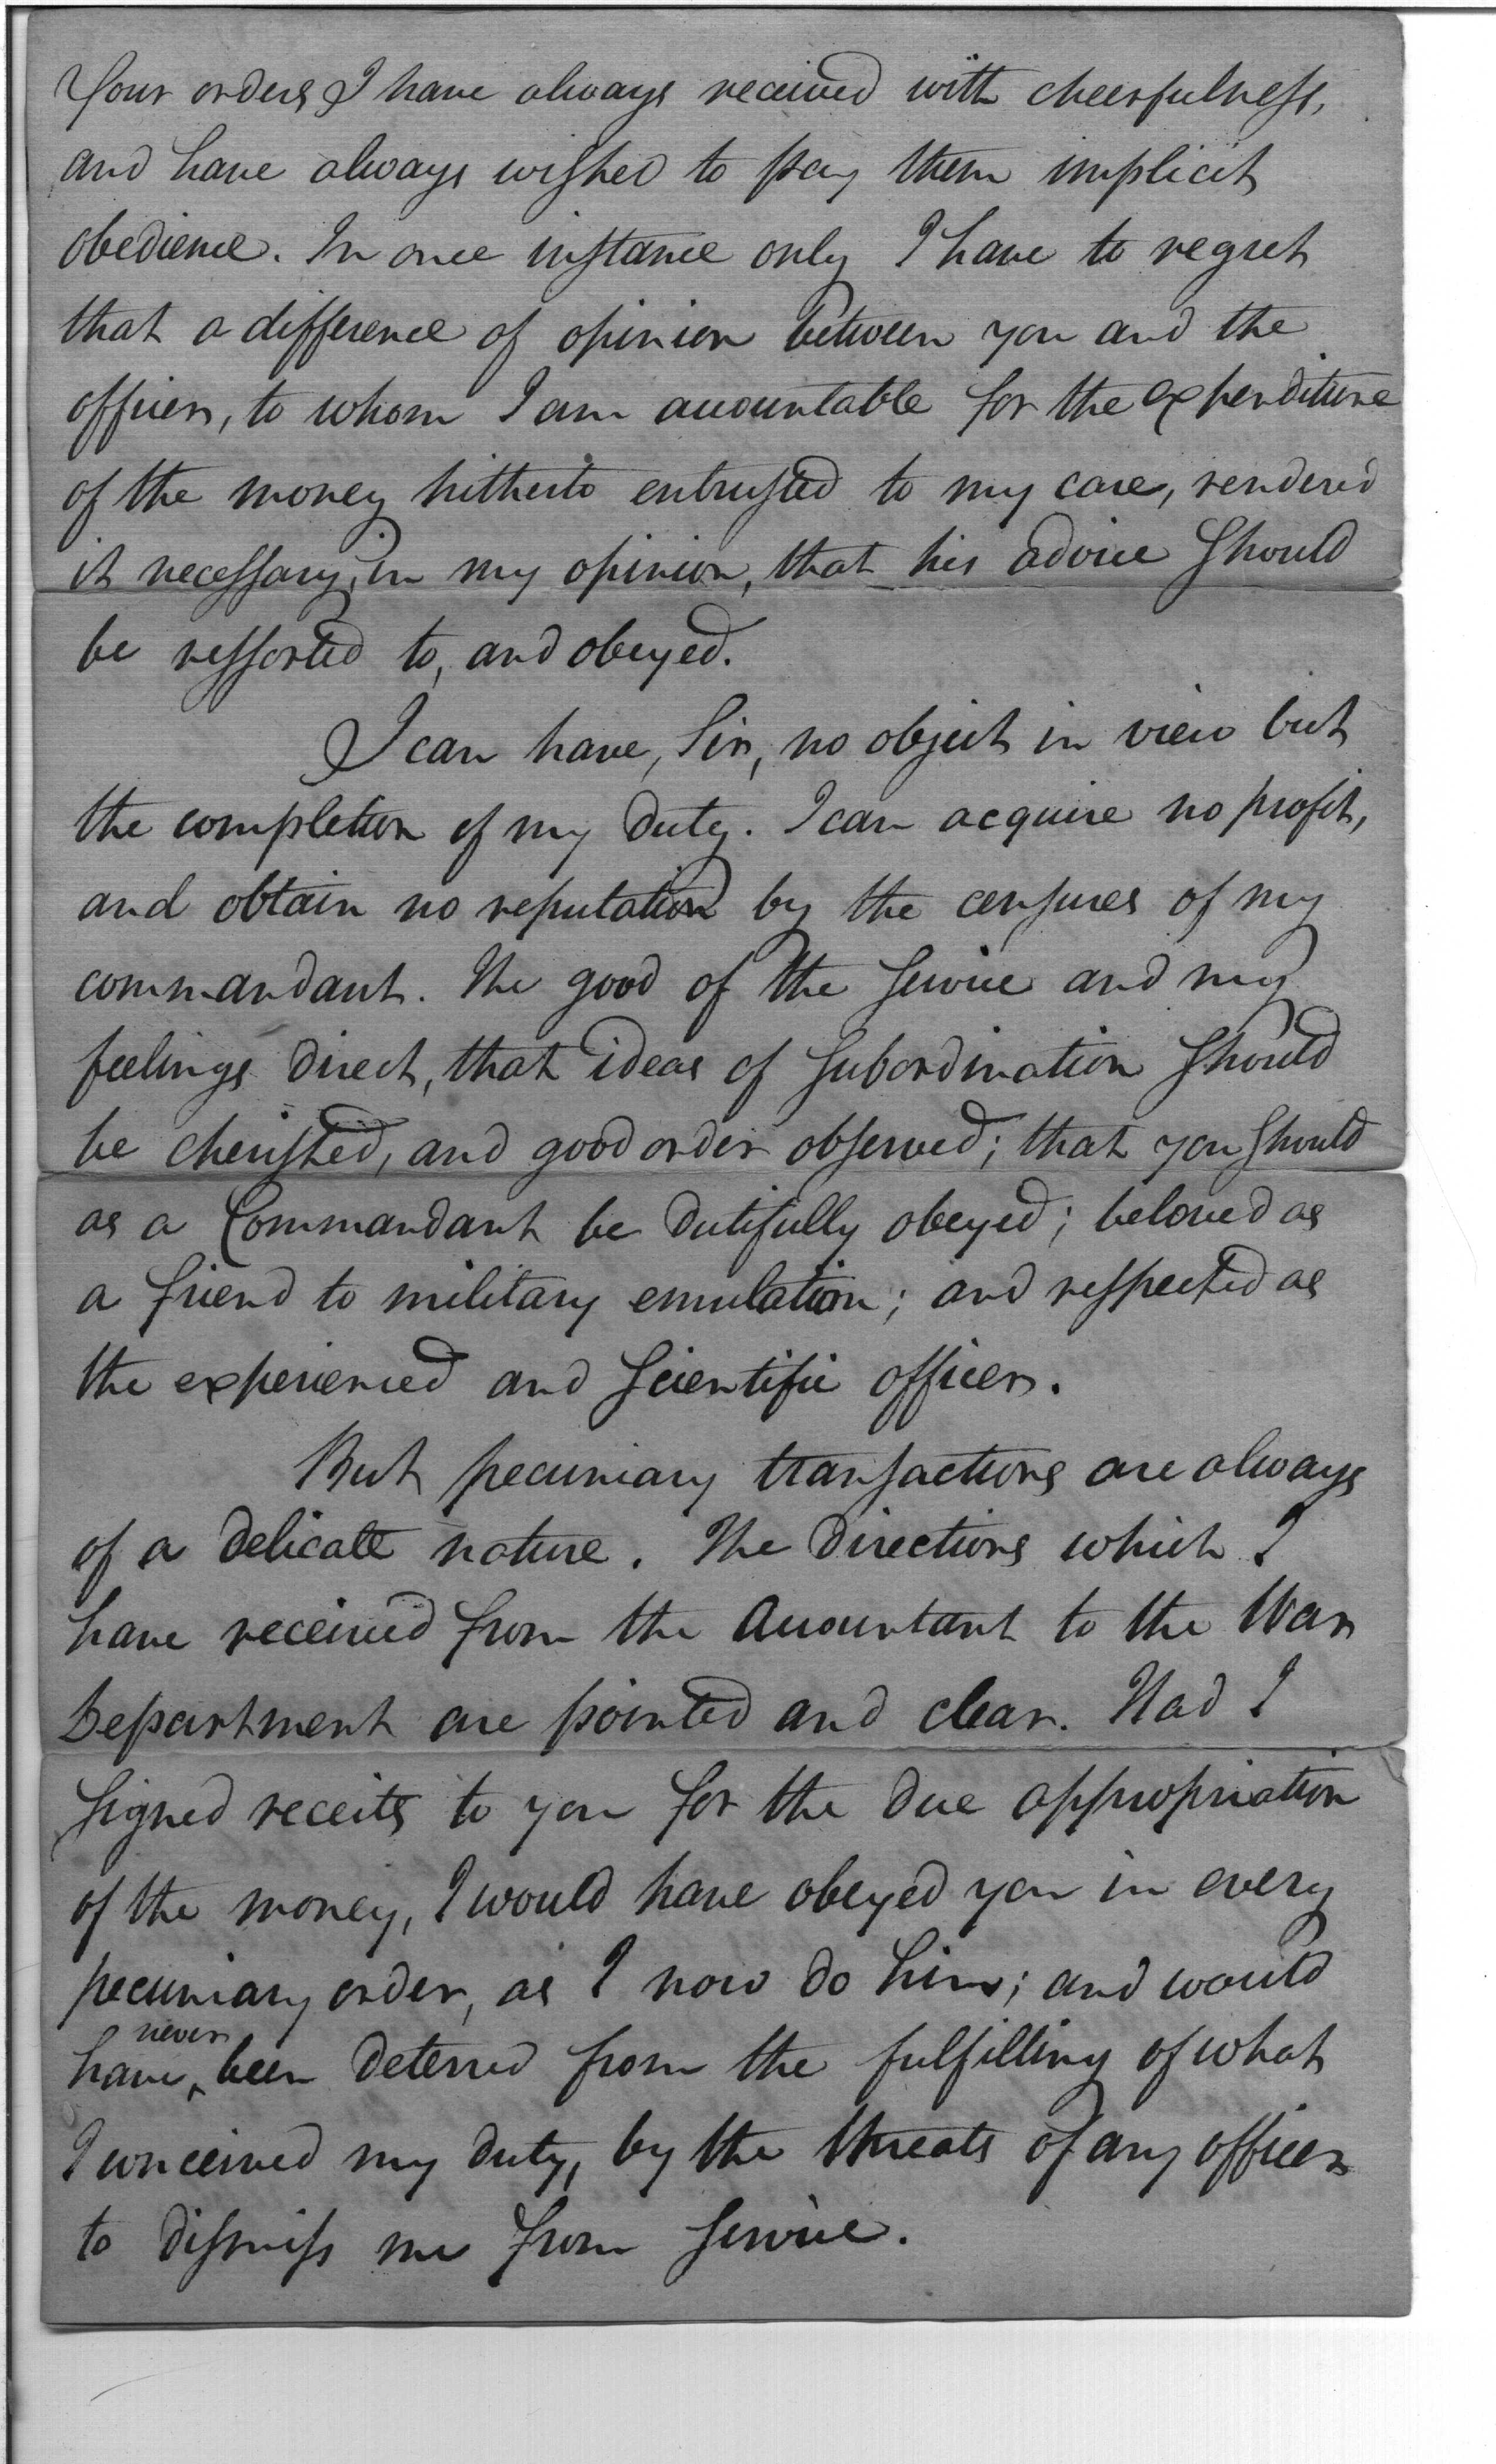 Your orders I have always received with cheerfulness,
and have always wished to pay them implicit
obedience. In once instance only I have to regret
that a difference of opinion between you and the
officer, to whom I am accountable for the expenditure
of the money hitherto entrusted to my care, rendered
it necessary, in my opinion, that his advice should
be ressorted to, and obeyed.
I can have, Sir, no object in view but
the completion of my duty. I can acquire no profit,
and obtain no reputation by the censures of my
commandant. The good of the service and my
feelings direct, that ideas of subordination should
be cherished, and good order observed; that you should
as a Commandant be dutifully obeyed; beloved as
a friend to military emulation; and respected as
the experienced and scientific officer.
But pecuniary transactions are always
of a delicate nature. The directions which I
have received from the Accountant to the War
Department are pointed and clear. Had I
signed receits to you for the due appropriation
of the money, I would have obeyed you in every
pecuniary order, as I now do him; and would
have never been deterred from the fulfilling of what
I conceived my duty, by the threats of any officer
to dismiss me from service.